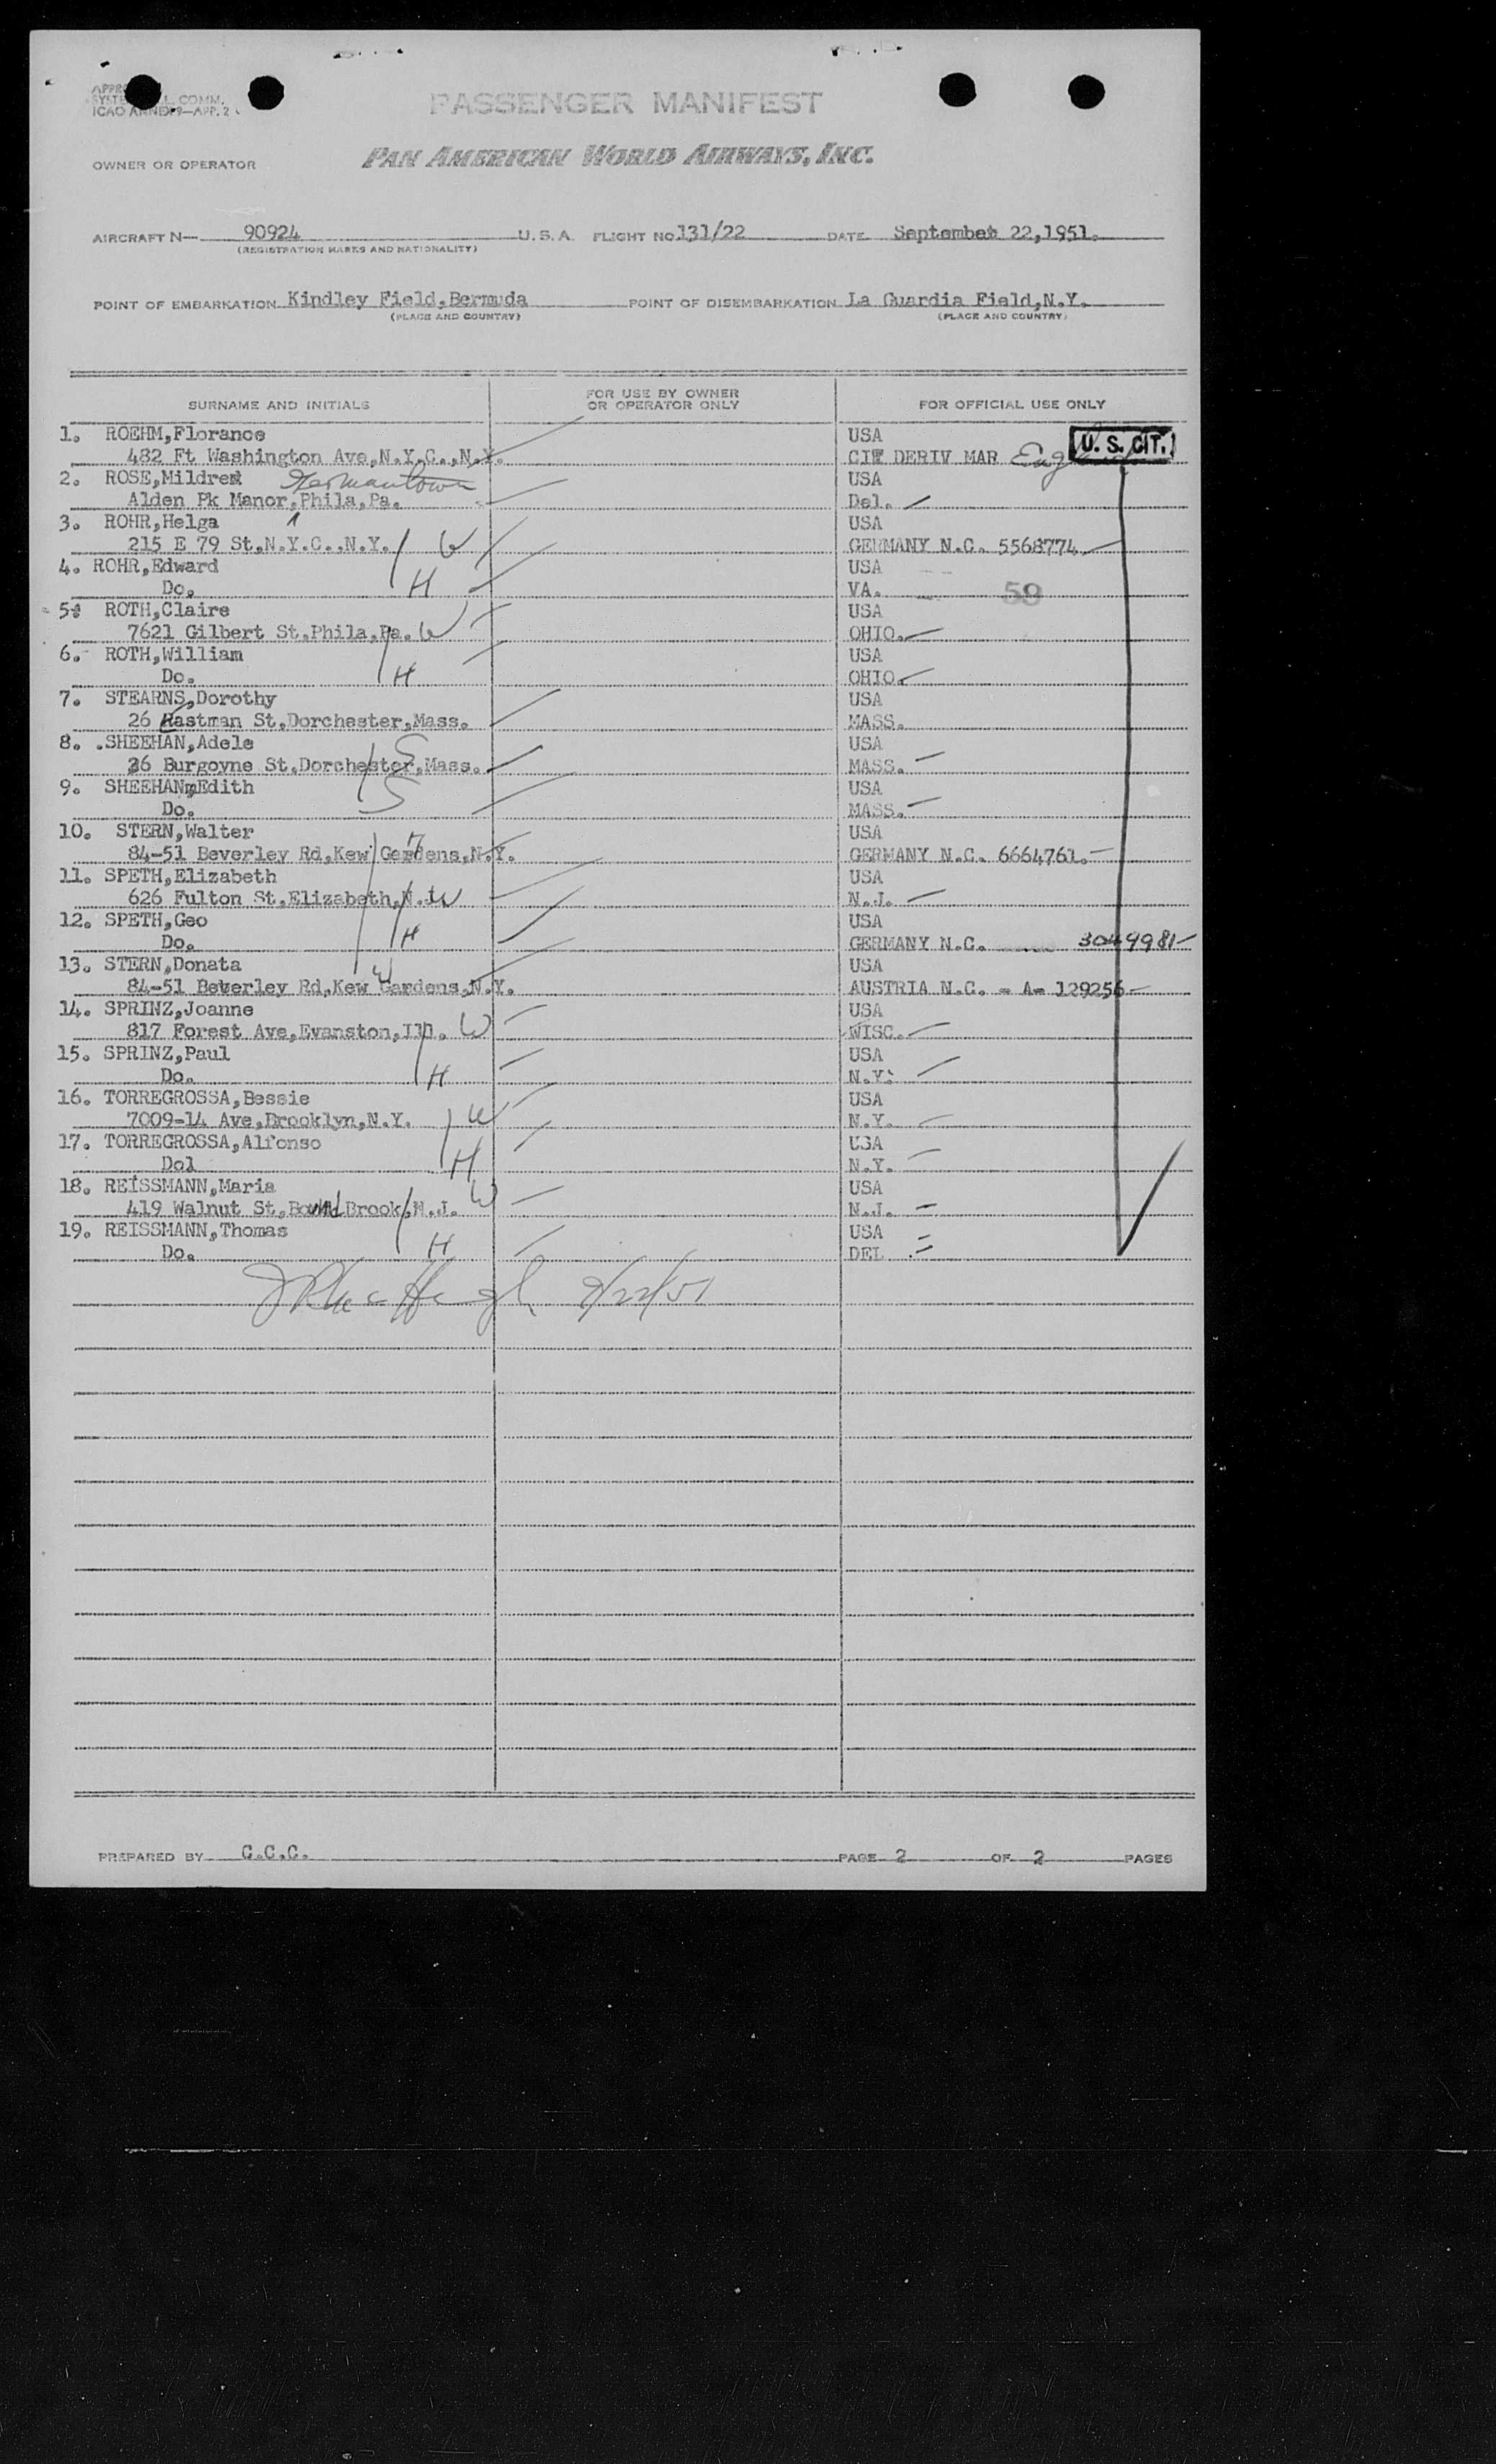 PASSENGER MANIFEST
ICAO ANNEX 9—APP. 2
OWNER OR OPERATOR PAN AMERICAN WORLD AIRWAYS, INC.
AIRCRAFT N— 90924 U. S. A. FLIGHT NO 131/22 DATE September 22,1951.
(REGISTRATION MARKS AND NATIONALITY)
POINT OF EMBARKATION Kindley Field,Bermuda POINT OF DISEMBARKATION La Guardia Field,N.Y.
(PLACE AND COUNTRY) (PLACE AND COUNTRY)
SURNAME AND INITIALS FOR USE BY OWNER OR OPERATOR ONLY FOR OFFICIAL USE ONLY
1. ROEHM,Florance USA U. S. CIT.
482 Ft Washington Ave,N.Y.C.,N.Y. CIT DERIV MAR England
2. ROSE,Mildred Germantown USA
Alden Pk Manor,Phila,Pa. Del.
3. ROHR,Helga USA
215 E 79 St,N.Y.C.,N.Y. W GERMANY N.C. 5568774
4. ROHR,Edward USA
Do. H VA. 59
5. ROTH,Claire USA
7621 Gilbert St,Phila,Pa. W OHIO.
6. ROTH,William USA
Do. H OHIO.
7. STEARNS,Dorothy USA
26 Eastman St,Dorchester,Mass. MASS.
8. .SHEEHAN,Adele S USA
26 Burgoyne St,Dorchester,Mass. MASS.
9. SHEEHAN,Edith S USA
Do. MASS.
10. STERN,Walter USA
84-51 Beverley Rd,Kew Gardens,N.Y. H GERMANY N.C. 6664761.
11. SPETH,Elizabeth USA
626 Fulton St,Elizabeth,N.J. W N.J.
12. SPETH,Geo USA
Do. H GERMANY N.C. 3049981
13. STERN,Donata USA
84-51 Beverley Rd,Kew Gardens,N.Y. W AUSTRIA N.C. - A- 129256
14. SPRINZ,Joanne USA
817 Forest Ave,Evanston,Ill. W WISC.
15. SPRINZ,Paul USA
Do. H N.Y.
16. TORREGROSSA,Bessie USA
7009-14 Ave,Brooklyn,N.Y. W N.Y.
17. TORREGROSSA,Alfonso USA
Dol H N.Y.
18. REISSMANN,Maria USA
419 Walnut St,Bound Brook,N.J. W N.J.
19. REISSMANN,Thomas USA
Do. H DEL
9/22/51
PREPARED BY C.C.C. PAGE 2 OF 2 PAGES